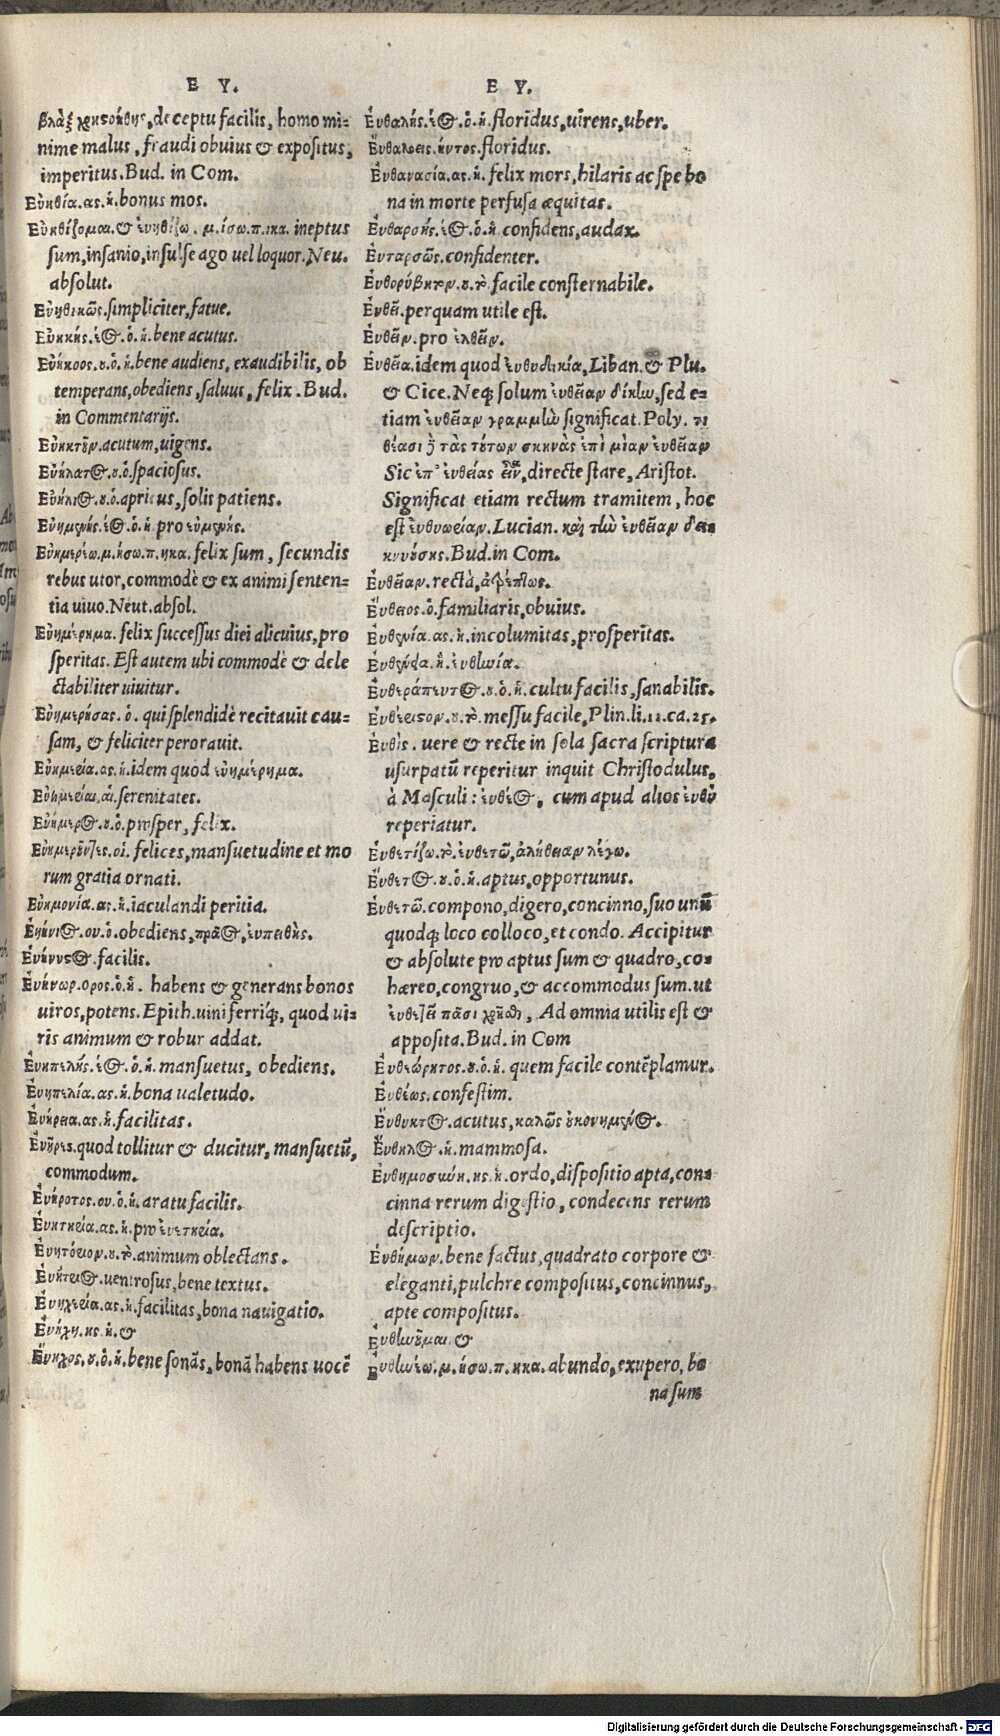 E Y.
βλὰξ χρηστοήθης, deceptu facilis, homo mi-
nime malus, fraudi obuius & expositus,
imperitus. Bud. in Com.
Εὐηθία. ας. ἡ. bonus mos.
Εὐηθίζομαι. & ἐυηθίζω. μ. ίσω. π. ικα. ineptus
sum, insanio, insulse ago uel loquor. Neu.
absolut.
Εὐηθικῶς. simpliciter, fatue.
Εὐηκὴς. έος. ὁ. ἡ. bene acutus.
Εὐήκοος. ου. ὁ. ἡ. bene audiens, exaudibilis, ob
temperans, obediens, saluus, felix. Bud.
in Commentarijs.
acutum, uigens.
Εὐήλατος. ου. ὁ. spaciosus.
Εὐήλιος. ου. ὁ. apricus, solis patiens.
pro
Εὐημερέω. μ. ήσω. π. ηκα. felix sum, secundis
rebus utor, commodè & ex animi senten-
tia uiuo. Neut. absol.
Εὐημέρημα. felix successus diei alicuius, pro
speritas. Est autem ubi commodè & dele
ctabiliter uiuitur.
Εὐημερήσας. ὁ. qui splendidè recitauit cau-
sam, & feliciter perorauit.
Εὐημερία. ας. ἡ. idem quod εὐημέρημα.
Εὐημερίαι. αἱ. serenitates.
Εὐήμερος. ου. ὁ. prosper, felix.
Εὐημεροῦντες. οἱ. felices, mansuetudine et mo
rum gratia ornati.
Εὐημονία. ας. ἡ. iaculandi peritia.
Εὐήνιος. ου. ὁ. obediens, πρᾶος, ἐυπειθὴς.
facilis.
Ἐυήνωρ. ορος. ὁ. ἡ. habens & generans bonos
uiros, potens. Epith. uini ferriq́;, quod ui-
ris animum & robur addat.
Ἐυηπελὴς. έος. ὁ. ἡ. mansuetus, obediens.
Ἐυηπελία. ας. ἡ. bona ualetudo.
ας. ἡ. facilitas.
Ἐυῆρες. quod tollitur & ducitur, mansuetũ,
commodum.
Ἐυήροτος. ου. ὁ. ἡ. aratu facilis.
ας. ἡ. pro
animum oblectans.
Ἐυήτριος. uentrosus, bene textus.
ας. ἡ. facilitas, bona nauigatio.
Ἐυήχη. ης. ἡ. &
Ἐύηχος. ου. ὁ. ἡ. bene sonãs, bonã habens uocẽ
E Y.
Ἐυθαλής. έος. ὁ. ἡ. floridus, uirens, uber.
Ἐυθαλόεις. ήντος. floridus.
Ἐυθανασία. ας. ἡ. felix mors, hilaris ac spe bo
na in morte perfusa æquitas.
Ἐυθαρσής. έος. ὁ. ἡ. confidens, audax.
Ἐυταρσῶς. confidenter.
Ἐυθορύβητον. ου. τὸ. facile consternabile.
Ἐυθεῖ. perquam utile est.
Ἐυθεῖν. pro ἐλθεῖν.
Ἐυθεῖα. idem quod ἐυθυδικία, Liban. & Plu.
& Cice. Neq; solum ἐυθεῖαν δίκην, sed e-
tiam ἐυθεῖαν γραμμὴν significat. Poly. τι
θέασι ἢ τὰς τούτων σκηνὰς ἐπὶ μίαν ἐυθεῖαν
Sic ἐπ' ἐυθείας εἶναι, directe stare, Aristot.
Significat etiam rectum tramitem, hoc
est ἐυθυωρίαν. Lucian. καὶ τὴν ἐυθεῖαν δει-
κνυούσης. Bud. in Com.
Ἐυθεῖαν. rectà, ἀτρέπτως.
Ἐύθειος. ὁ. familiaris, obuius.
Ἐυθενία. ας. ἡ. incolumitas, prosperitas.
Ἐυθεράπευτος. ου. ὁ. ἡ. cultu facilis, sanabilis.
Ἐυθέριστον. ου. τὸ. messu facile, Plin. li. 12. ca. 25.
Ἐυθὲς. uere & recte in sola sacra scriptura
usurpatũ reperitur inquit Christodulus,
à Masculi: ἐυθέος, cum apud alios ἐυθὺ
reperiatur.
Ἐυθετίζω. τὸ. ἐυθετῶ, ἀλήθειαν λέγω.
Ἐύθετος. ου. ὁ. ἡ. aptus, opportunus.
Ἐυθετῶ. compono, digero, concinno, suo unũ
quodq; loco colloco, et condo. Accipitur
& absolute pro aptus sum & quadro, co-
hæreo, congruo, & accommodus sum. ut
ἐυθετεῖ πᾶσι χρῆσθαι, Ad omnia utilis est &
apposita. Bud. in Com
Ἐυθεώρητος. ου. ὁ. ἡ. quem facile contẽplamur.
Ἐυθέως. confestim.
Ἐύθηκτος. acutus, καλῶς ἠκονημένος.
Ἐύθηλος. ἡ. mammosa.
Ἐυθημοσύνη. ης. ἡ. ordo, dispositio apta, con-
cinna rerum digestio, condecens rerum
descriptio.
Ἐυθήμων. bene factus, quadrato corpore &
eleganti, pulchre compositus, concinnus,
apte compositus.
Ἐυθηνοῦμαι. &
Ἐυθηνέω. μ. ήσω. π. ηκα. abundo, exupero, bo
na sum
Digitalisierung gefördert durch die Deutsche Forschungsgemeinschaft - DFG